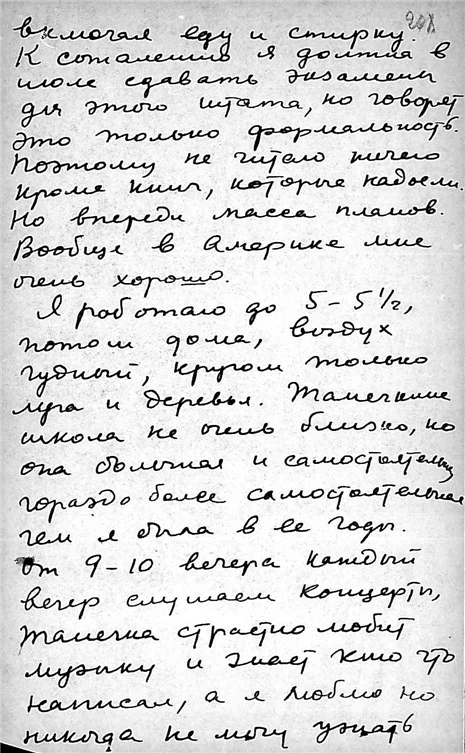 201
включая еду и стирку.
К сожалению я должна в
июле сдавать экзамены
для этого штата, но говорят
это только формальность.
Поэтому не читаю ничего
кроме книг, которые надоели.
Но впереди масса планов.
Вообще в Америке мне
очень хорошо.
Я работаю до 5 – 5 1/2,
потом дома, воздух
чудный, кругом только
луга и деревья. Танечкина
школа не очень близко, но
она большая и самостоятельна,
гораздо более самостоятельная
чем я была в ее годы.
От 9 – 10 вечера каждый
вечер слушаем концерты,
Танечка страстно любит
музыку и знает кто что
написал, а я люблю но
никогда не могу узнать